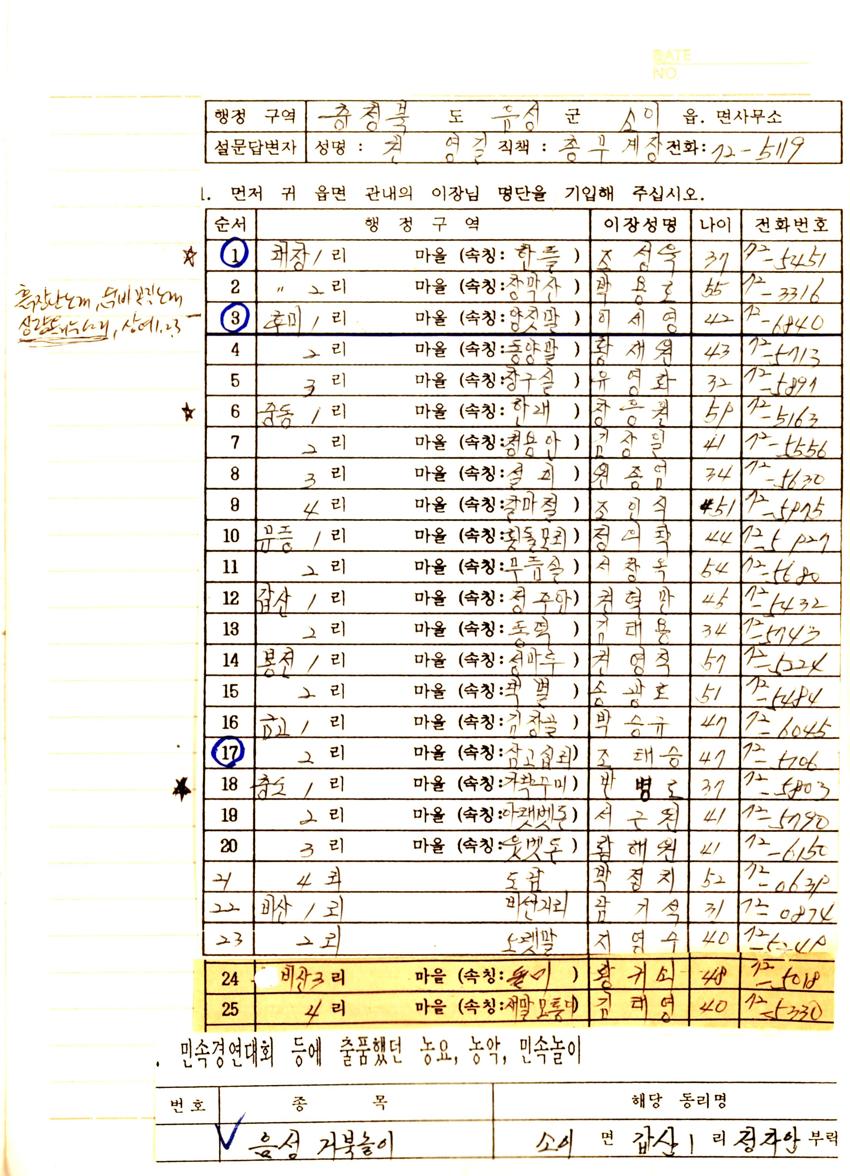 DATE
NO
행정 구역 충청북 도 음성 군 소이 읍. 면사무소
설문답변자 성명 : 권 영길 직책 : 총무계장 전화: 72-5119
1. 먼저 귀 읍면 관내의 이장님 명단을 기입해 주십시오.
순서 행 정 구 역 이장성명 나이 전화번호
1 대장 1 리 마을 (속칭: 한들 ) 조 성욱 37 72-5451
2 〃 2 리 마을 (속칭: ) 박 용로 55 72-3316
3 후미 1 리 마을 (속칭: 양짓말 ) 이 세 영 42 72-6840
4 2 리 마을 (속칭: 동양말 ) 황 세 원 43 72-5713
5 3 리 마을 (속칭: 장구실 ) 유 영 화 32 72-5891
6 중동 1 리 마을 (속칭: 한내 ) 59 72-5163
7 2 리 마을 (속칭: 청용안 ) 김 장 일 41 72-5556
8 3 리 마을 (속칭: ) 원 종 업 34 72-5630
9 4 리 마을 (속칭: 갈마절 ) 조 인 식 51 72-5975
10 1 리 마을 (속칭: ) 44 72-5927
11 2 리 마을 (속칭: 무듬실 ) 서 창 옥 54 72-5680
12 갑산 1 리 마을 (속칭: 정주안 ) 권 혁 만 45 72-5432
13 2 리 마을 (속칭: 동막 ) 김 태 용 34 72-5743
14 봉전 1 리 마을 (속칭: 성마루 ) 권 영 축 57 72-5224
15 2 리 마을 (속칭: ) 송 광 호 51 72-5484
16 금고 1 리 마을 (속칭: 김장골 ) 박 승 규 47 72-6045
17 2 리 마을 (속칭: ) 조 태 승 47 72-5706
18 충도 1 리 마을 (속칭: ) 반 병 로 37 72-5803
19 2 리 마을 (속칭: 아랫벳돈 ) 서 근 원 41 72-5790
20 3 리 마을 (속칭: 웃벳돈 ) 해 원 41 72-6150
21 4 리 도장 박 정 치 52 72-0639
22 비산 1 리 비선지리 기 석 31 72-0874
23 2 리 노랫말 지 엽 수 40 72-5249
24 비산 3 리 마을 (속칭: 돌미 ) 황 귀 48 72-5018
25 4 리 마을 (속칭: 새말 모퉁이 ) 김 태 영 40 72-5330
. 민속경연대회 등에 출품했던 농요, 농악, 민속놀이
번호 종 목 해당 동리명
음성 거북놀이 소이 면 갑산 1 리 정자안 부락